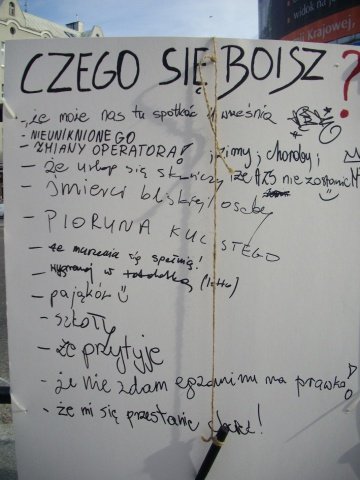 widok na
Armii Krajowej,
CZEGO SIĘ BOISZ ?
- że może nas tu spotkać września
- NIEUNIKNIONEGO
- ZMIANY OPERATORA! , zimy, choroby i
- że urlop się skończy że AZS nie zostanie M
- śmierci bliskiej osoby
- PIORUNA KULISTEGO
- że marzenia się spełnią!
- wygranej w (lotto)
- pająków
- szkoły
- że przytyję
- że nie zdam egzaminu na prawko!
- że mi się przestanie !